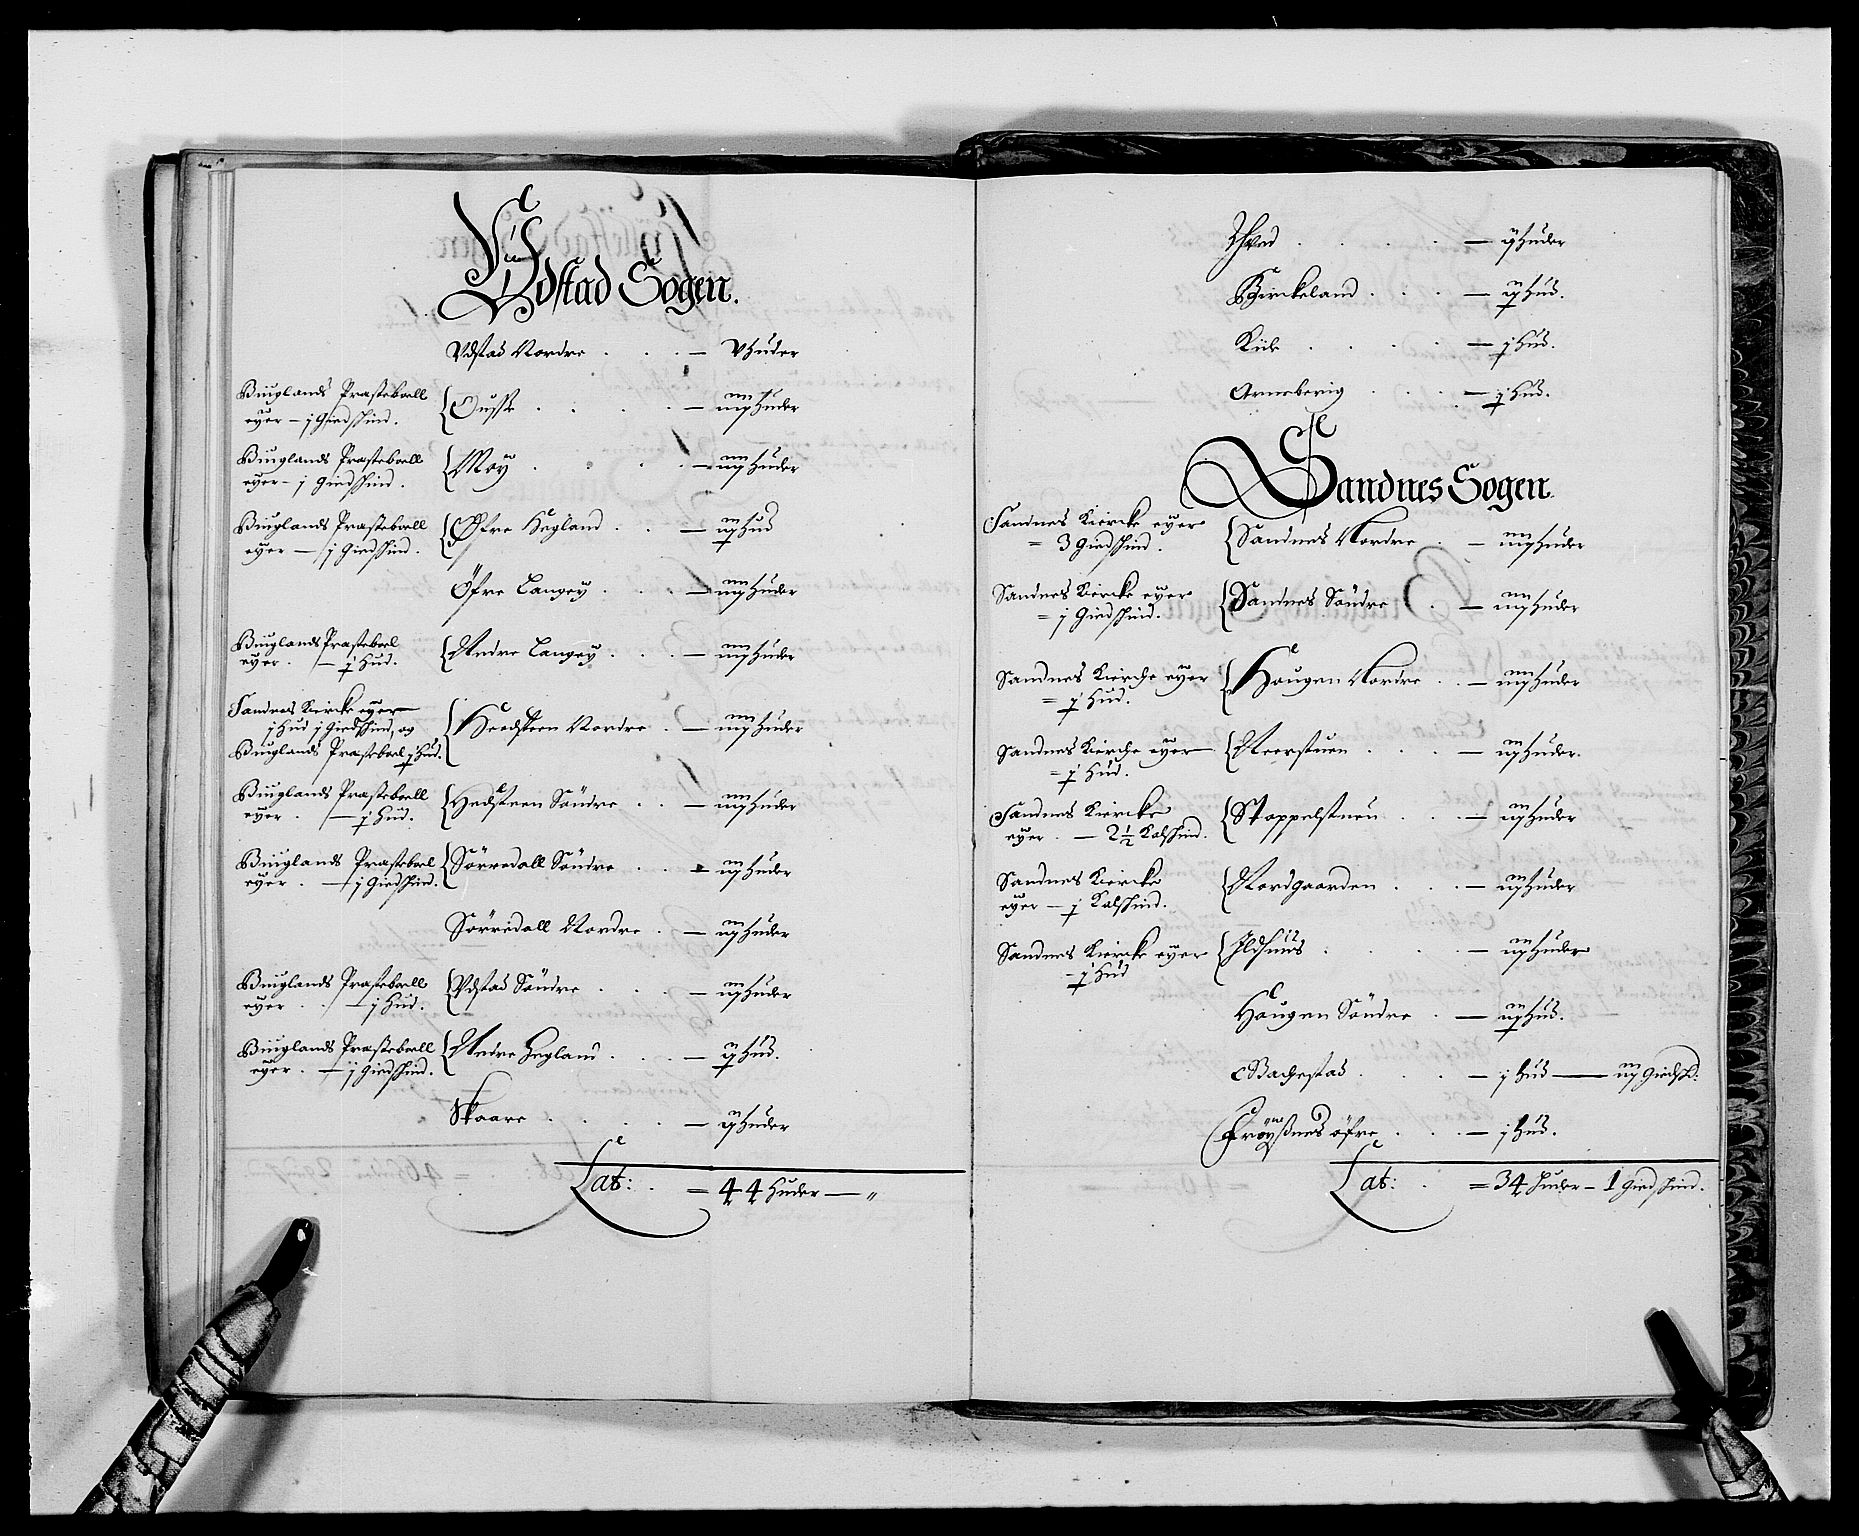 Udstad Sogen.
Udstad Nordre . . . — V Huder
Buglands Præsteboell
eyer — j Giedskind. { Ousse . . . . — iiij Huder
Buglands Præsteboell
eyer — j Giedskind. { Moÿ . . . . — iiij Huder
Buglands Præsteboell
eyer — j Giedskind. { Øfre Hegland . . . — iij Hud
Öfre Langeÿ . . . . — iiij Huder
Buglands Præsteboel
eyer . — j Hud. { Nedre Langeÿ . . . — iiij Huder
Sandnes Kiercke eyer
j Hud j Giedskind, og
Buglands Præsteboel j Hud. { Heedsteen Nordre . — iiij Huder
Buglands Præsteboell
eyer . — j Hud. { Hedsteen Söndre . . — iiij Huder
Buglands Præsteboel
eyer . — j Giedskind. { Sörredall Söndre . . — iij Huder
Sörredall Nordre . — iij Huder
Buglands Præsteboell
eyer . . — j Hud. { Udstad Söndre . . . — iij Huder
Buglands Præsteboell
eyer . — j Giedskind. { Nedre Hegland . . . — ij Hud.
Skaare . . . . — ij Huder
Lat: . = 44 Huder — „
. . . . — ij Huder
Birckeland . . . — ij Hud.
Kile . . . . — j Hud.
Arneberig . . . — j Hud.
Sandnes Sogen.
Sandnes Kiercke eyer
= 3 Giedskind. { Sandnes Nordre . — iiij Huder
Sandnes Kiercke eyer
= j Giedskind. { Sandnes Söndre . — iiij Huder
Sandnes Kierche eyer
= j Hud. { Haugen Nordre . . — iiij Huder
Sandnes Kierche eyer
= j Hud. { Neerstuen . . . — iij Huder.
Sandnes Kiercke
eyer . — 2 1/2 Kalskind. { Stoppelstuen . . . — iij Huder
Sandnes Kiercke
eyer — j Kalskind. { Nordgaarden . . . — iij Huder
Sandnes Kiercke eyer
— j Hud { Ildhuus . . . . — iij Huder
Haugen Söndre . — iij Hud.
Bachestad . . . — j Hud — iij Giedsk:
Fröÿsnes öfre . . . — j Hud.
Lat: . = 34 Huder — 1 Giedskind.